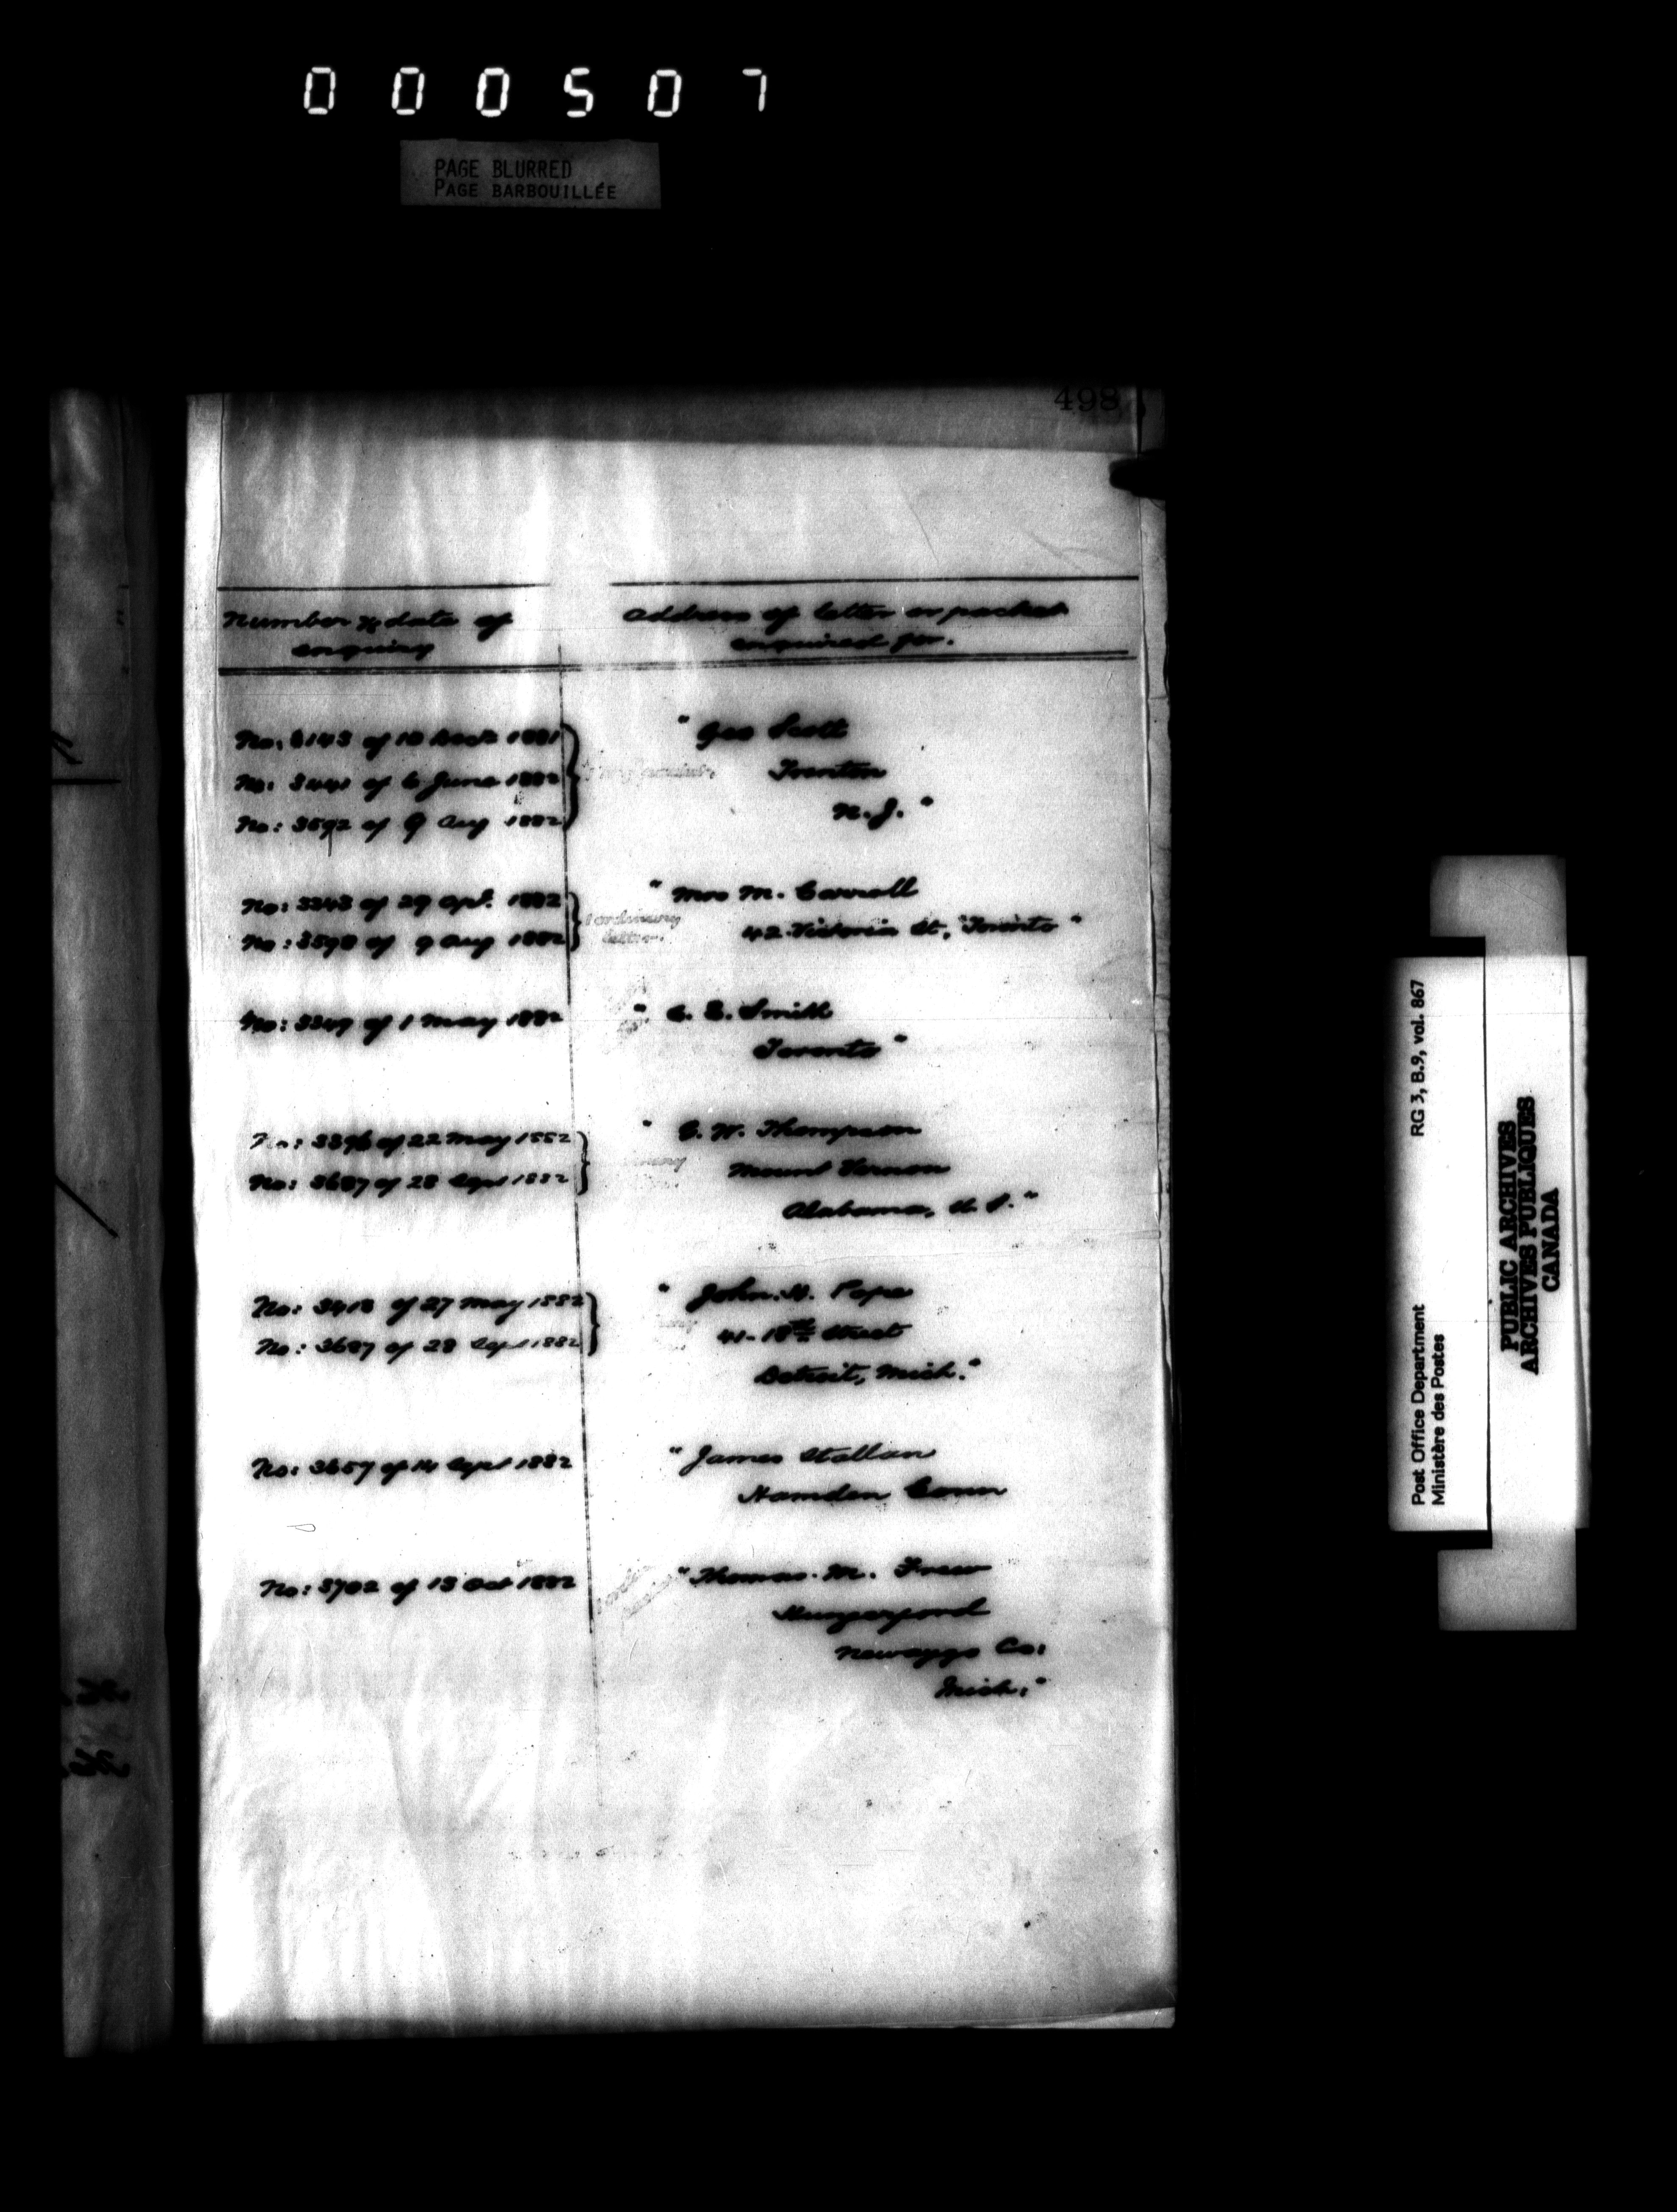 000507
PAGE BLURRED
PAGE BARBOUILLÉE
498
Number & date of enquiry
Address of letter or packet enquired for.
No: 3143 of 10 1881
No: 3441 of 6 June 1882
No: 3592 of 9 Aug 1882
" Geo Scott
Trenton
N. J. "
No: 3343 of 29 Apl. 1882
No: 3598 of 9 Aug 1882
1 ordinary
letter.
" Mrs M. Carroll
42 Victoria St, Toronto "
No: 3349 of 1 May 1882
" C. E. Smith
Toronto "
No: 3396 of 22 May 1882
No: 3687 of 28 Sept 1882
" C. W. Thompson
Mount Vernon
Alabama, U. S. "
No: 3418 of 27 May 1882
No: 3687 of 28 Sept 1882
" John. H. Pope
41-18th Street
Detroit, Mich. "
No: 3657 of 14 Sept 1882
" James Stallan
Hamden Conn
No: 3702 of 13 Oct 1882
" Thomas. M. Frew
Newaygo Co:
Mich: "
Post Office Department RG 3, B.9, vol. 867
Ministère des Postes
PUBLIC ARCHIVES
ARCHIVES PUBLIQUES
CANADA